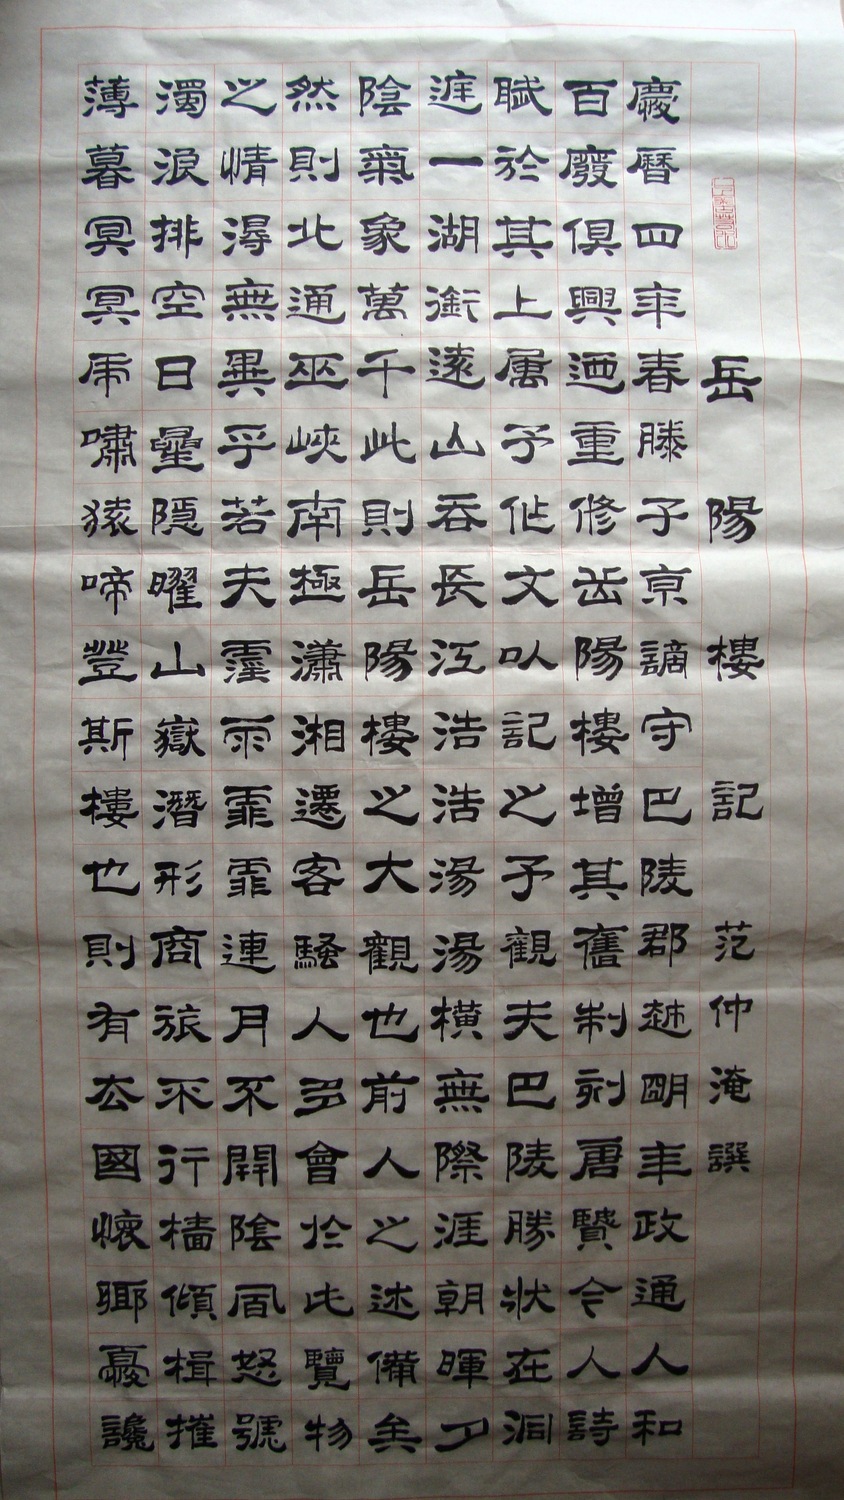 岳陽樓記 范仲淹譔
慶曆四年春滕子京謫守巴陵郡越明年政通人和
百廢俱興迺重修岳陽樓增其舊制刻唐賢今人詩
賦於其上属予作文以記之予觀夫巴陵勝狀在洞
庭一湖銜遠山吞長江浩浩湯湯橫無際涯朝暉夕
陰氣象萬千此則岳陽樓之大觀也前人之述備矣
然則北通巫峽南極瀟湘遷客騷人多會於此覽物
之情得無異乎若夫霪雨霏霏連月不開陰風怒號
濁浪排空日星隱曜山嶽潛形商旅不行檣傾楫摧
薄暮冥冥虎嘯猿啼登斯樓也則有去國懷鄉憂讒